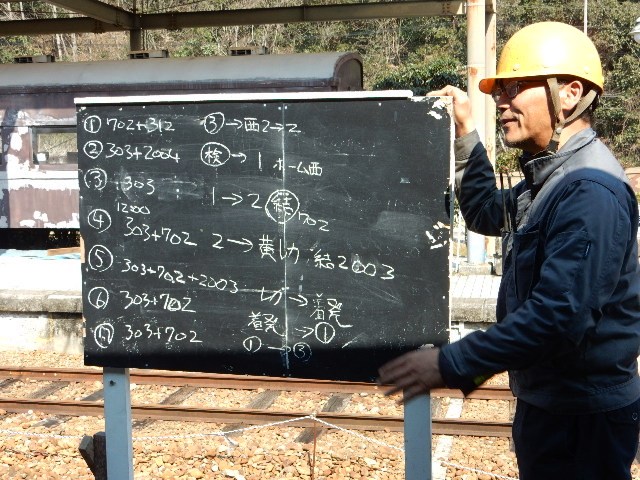 ① 702+312
② 303+2004
③ 303
12:00
④ 303+702
⑤ 303+702+2003
⑥ 303+702
⑦ 303+702
③→西2→2
検→1 ホーム西
1→2 結702
2→黄レカ 結2003
→着発
着発→①
①→③